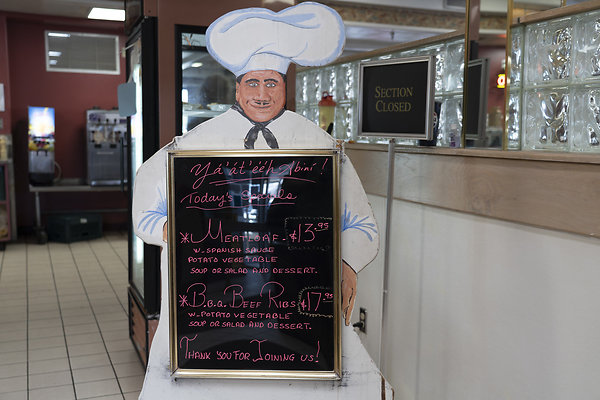 Yá'át'ééh Abíní!
Today's Specials
* MEATLOAF - $13.95
W. SPANISH SAUCE
POTATO VEGETABLE
SOUP OR SALAD AND DESSERT.
* B.B.Q. BEEF RIBS $17.95
W- POTATO VEGETABLE
SOUP OR SALAD AND DESSERT.
THANK YOU FOR JOINING US!
SECTION
CLOSED